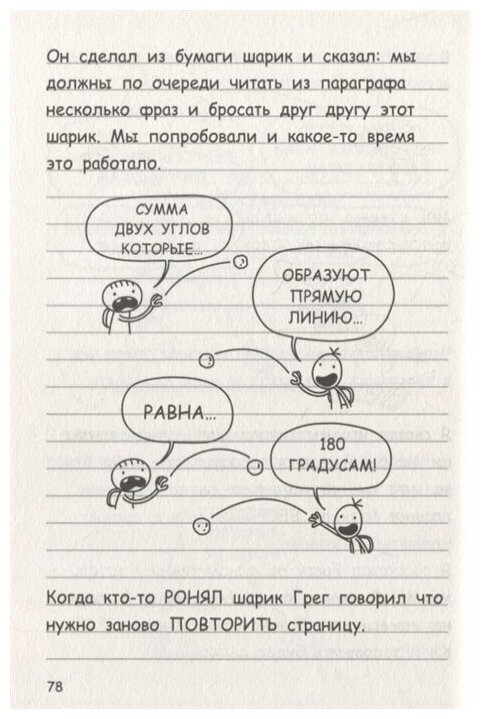 Он сделал из бумаги шарик и сказал: мы
должны по очереди читать из параграфа
несколько фраз и бросать друг другу этот
шарик. Мы попробовали и какое-то время
это работало.
СУММА
ДВУХ УГЛОВ
КОТОРЫЕ...
ОБРАЗУЮТ
ПРЯМУЮ
ЛИНИЮ...
РАВНА...
180
ГРАДУСАМ!
Когда кто-то РОНЯЛ шарик Грег говорил что
нужно заново ПОВТОРИТЬ страницу.
78